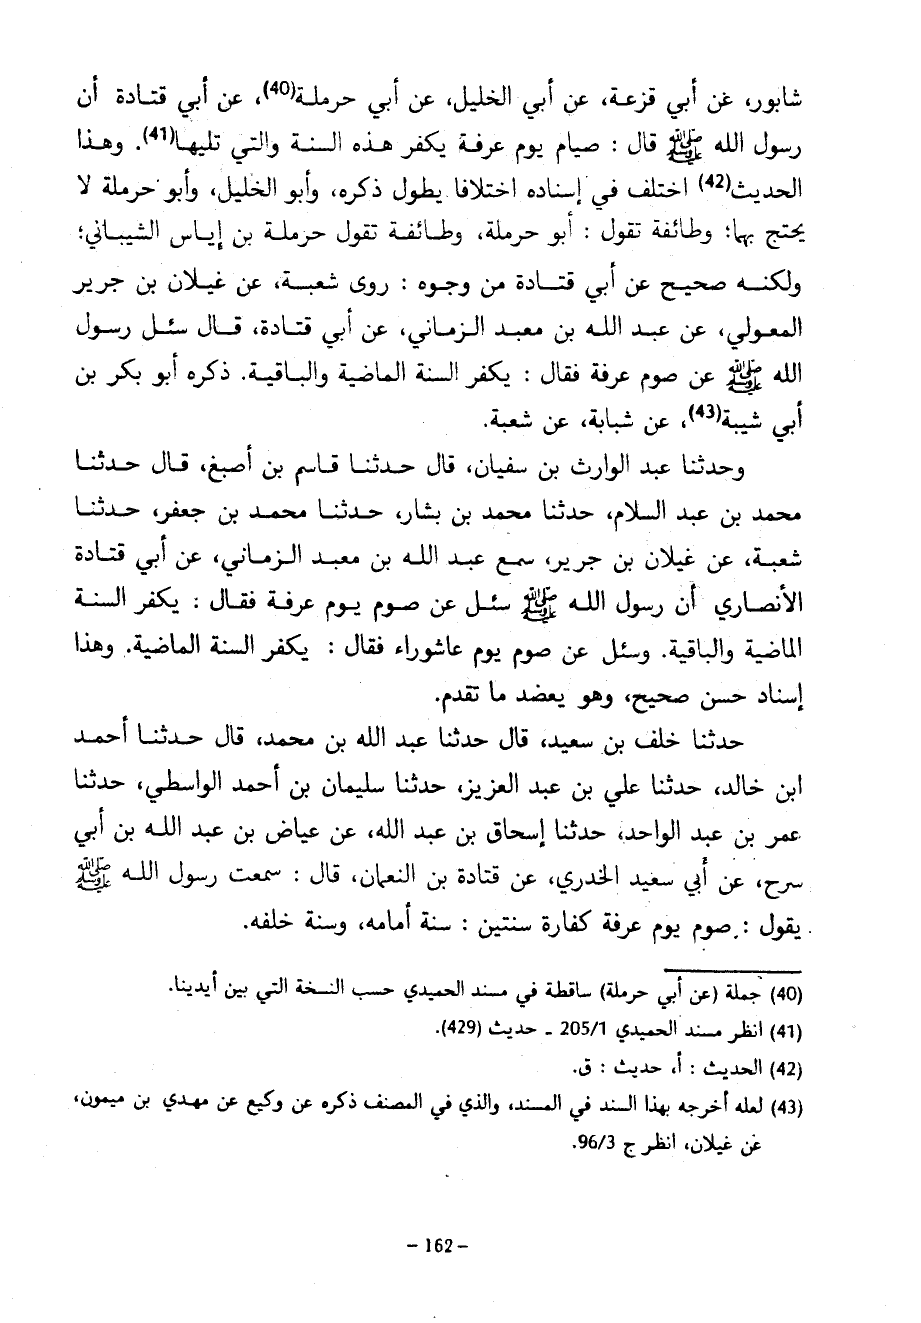 شابور، عن أبي قزعة، عن أبي الخليل، عن أبي حرملة(40)، عن أبي قتادة أن
رسول الله ﷺ قال : صيام يوم عرفة يكفر هذه السنة والتي تليها(41). وهذا
الحديث(42) اختلف في إسناده اختلافا يطول ذكره، وأبو الخليل، وأبو حرملة لا
يحتج بها؛ وطائفة تقول : أبو حرملة، وطائفة تقول حرملة بن إياس الشيباني؛
ولكنه صحيح عن أبي قتادة من وجوه : روى شعبة، عن غيلان بن جرير
المعولي، عن عبد الله بن معبد الزماني، عن أبي قتادة، قال سئل رسول
الله ﷺ عن صوم عرفة فقال : يكفر السنة الماضية والباقية. ذكره أبو بكر بن
أبي شيبة(43)، عن شبابة، عن شعبة.
وحدثنا عبد الوارث بن سفيان، قال حدثنا قاسم بن أصبغ، قال حدثنا
محمد بن عبد السلام، حدثنا محمد بن بشار، حدثنا محمد بن جعفر، حدثنا
شعبة، عن غيلان بن جرير، سمع عبد الله بن معبد الزماني، عن أبي قتادة
الأنصاري أن رسول الله ﷺ سئل عن صوم يوم عرفة فقال : يكفر السنة
الماضية والباقية. وسئل عن صوم يوم عاشوراء فقال : يكفر السنة الماضية. وهذا
إسناد حسن صحيح، وهو يعضد ما تقدم.
حدثنا خلف بن سعيد، قال حدثنا عبد الله بن محمد، قال حدثنا أحمد
ابن خالد، حدثنا علي بن عبد العزيز، حدثنا سليمان بن أحمد الواسطي، حدثنا
عمر بن عبد الواحد، حدثنا إسحاق بن عبد الله، عن عياض بن عبد الله بن أبي
سرح، عن أبي سعيد الخدري، عن قتادة بن النعمان، قال : سمعت رسول الله ﷺ
يقول : صوم يوم عرفة كفارة سنتين : سنة أمامه، وسنة خلفه.
(40) جملة (عن أبي حرملة) ساقطة في مسند الحميدي حسب النسخة التي بين أيدينا.
(41) انظر مسند الحميدي 205/1 ـ حديث (429).
(42) الحديث : أ، حديث : ق.
(43) لعله أخرجه بهذا السند في المسند، والذي في المصنف ذكره عن وكيع عن مهدي بن ميمون،
عن غيلان، انظر ج 96/3.
- 162 -